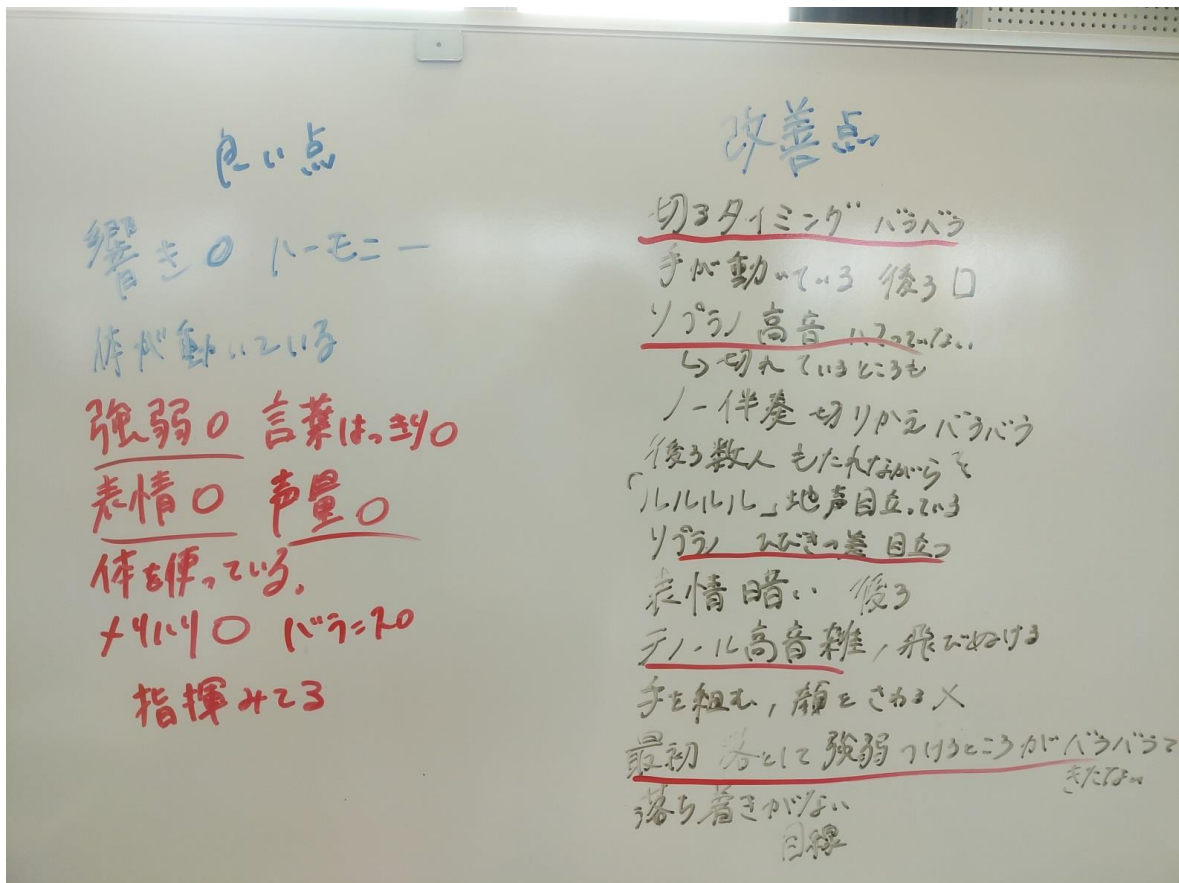 良い点
響き○ ハーモニー
体が動いている
強弱○ 言葉はっきり○
表情○ 声量○
体を使っている。
メリハリ○ バランス○
指揮みてる
改善点
切るタイミング バラバラ
手が動いている 後ろ口
ソプラノ 高音 いっていない
↳切れているところも
ノー伴奏 切りかえ バラバラ
後ろ数人 もたれながら
「ルルルル」地声目立っている
ソプラノ ひびきの差 目立つ
表情暗い 後ろ
テノール高音雑, 飛びぬける
手を組む, 顔をさわる×
最初 落として 強弱つけるところがバラバラで
きたない
落ち着きがない
目線